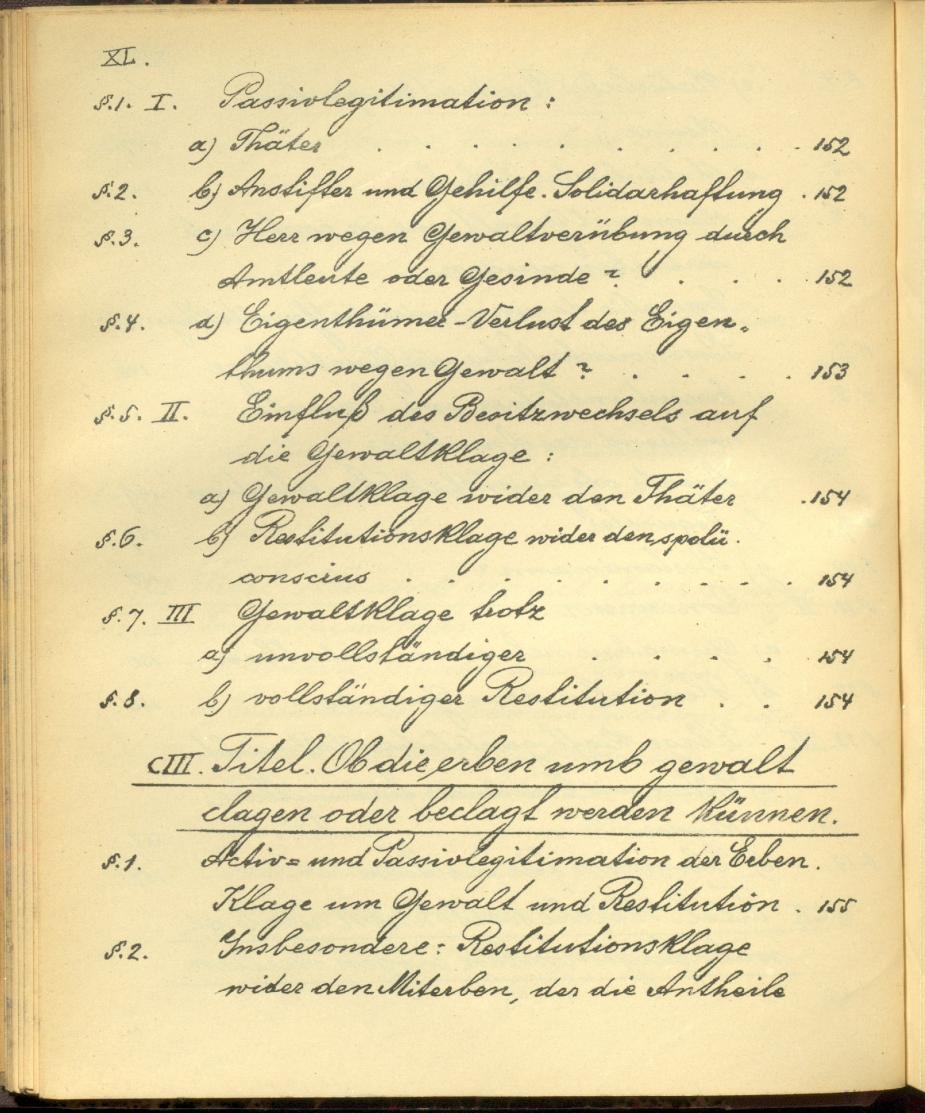 XL.
§.1. I. Passivlegitimation:
a) Thäter . . . . . . . . . . 152
§.2. b) Anstifter und Gehilfe. Solidarhaftung . 152
§.3. c) Herr wegen Gewaltverübung durch
Amtleute oder Gesinde? . . . . 152
§.4. d) Eigenthümer-Verlust des Eigen„
thums wegen Gewalt? . . . . . 153
§.5. II. Einfluß des Besitzwechsels auf
die Gewaltklage:
a) Gewaltklage wider den Thäter . 154
§.6. b) Restitutionsklage wider den spolii
conscius . . . . . . . . . 154
§.7. III Gewaltklage trotz
a) unvollständiger . . . . 154
§.8. b) vollständiger Restitution . . 154
CIII. Titel. Ob die erben umb gewalt
clagen oder beclagt werden künnen.
§.1. Activ= und Passivlegitimation der Erben.
Klage um Gewalt und Restitution . 155
§.2. Insbesondere: Restitutionsklage
wider den Miterben, der die Antheile